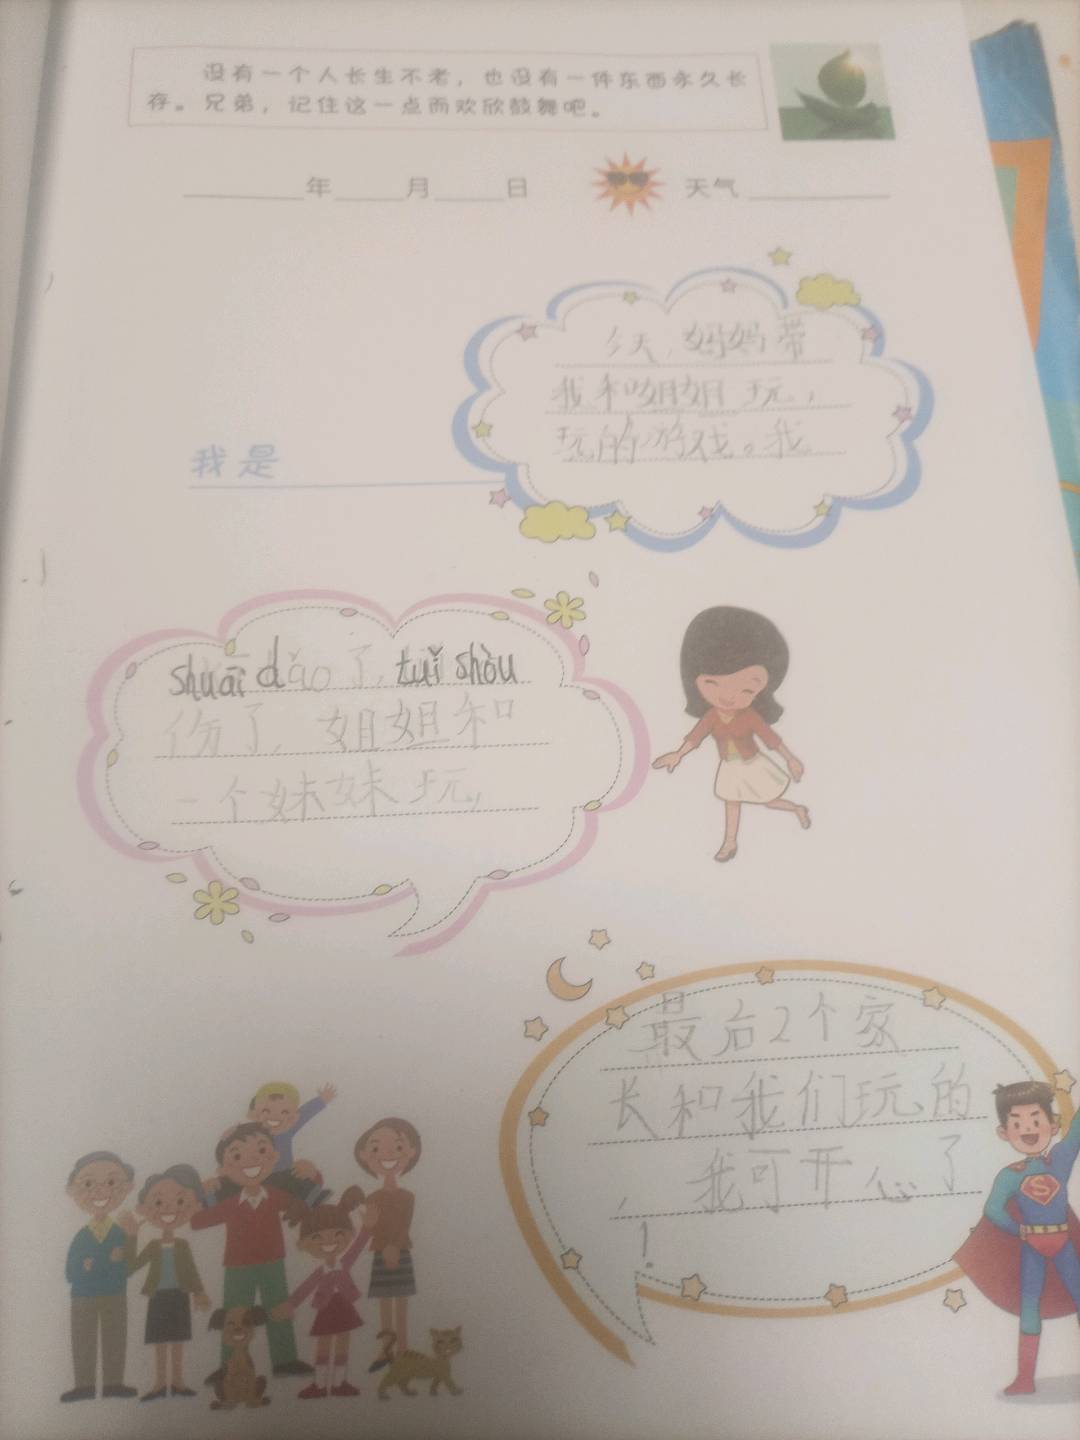 没有一个人长生不老，也没有一件东西永久长
存。兄弟，记住这一点而欢欣鼓舞吧。
年 月 日 天气
今天，妈妈带
我和姐姐玩，
玩的游戏。我
我是
shuāi dǎo了，tuǐ shòu
伤了，姐姐和
一个妹妹玩，
最后2个家
长和我们玩的
，我可开心了
！
S